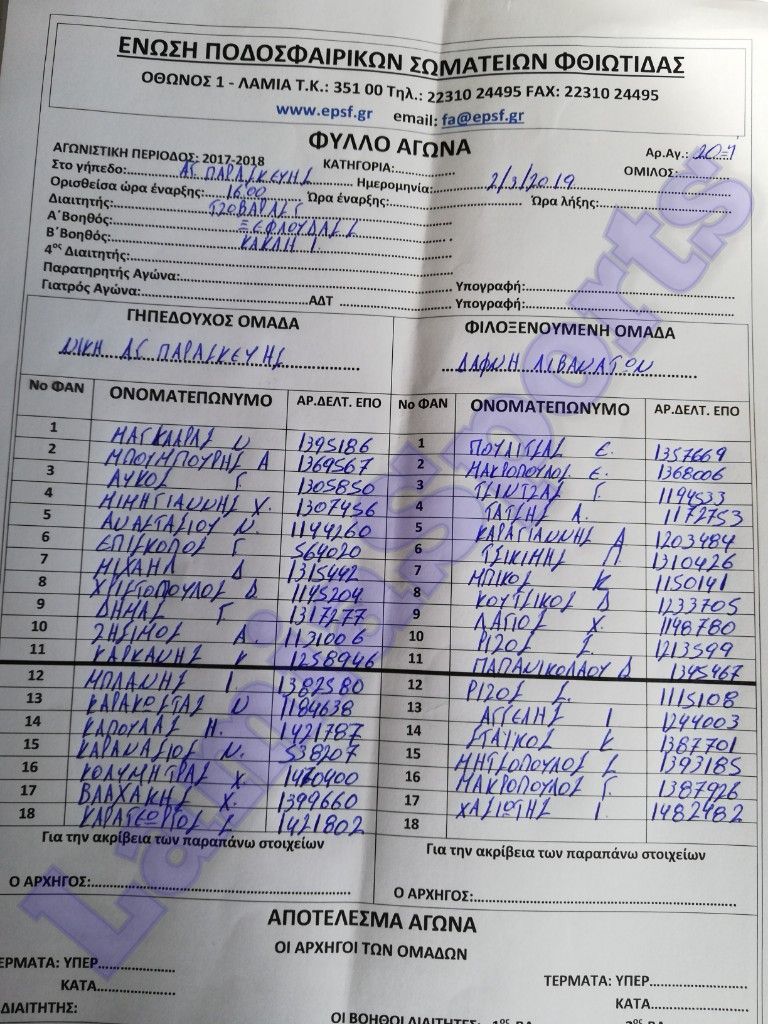 ΕΝΩΣΗ ΠΟΔΟΣΦΑΙΡΙΚΩΝ ΣΩΜΑΤΕΙΩΝ ΦΘΙΩΤΙΔΑΣ
ΟΘΩΝΟΣ 1 - ΛΑΜΙΑ Τ.Κ.: 351 00 Τηλ.: 22310 24495 FAX: 22310 24495
www.epsf.gr email: fa@epsf.gr
ΦΥΛΛΟ ΑΓΩΝΑ
Αρ.Αγ.:
ΑΓΩΝΙΣΤΙΚΗ ΠΕΡΙΟΔΟΣ: 2017-2018 ΚΑΤΗΓΟΡΙΑ: ΟΜΙΛΟΣ:
Στο γήπεδο: ΑΓ ΠΑΡΑΣΚΕΥΗΣ Ημερομηνία: 2/3/2019
Ορισθείσα ώρα έναρξης: 16:00 Ώρα έναρξης: Ώρα λήξης:
Διαιτητής: ΤΖΟΒΑΡΑΣ Γ
Α΄Βοηθός: ΞΕΦΛΟΥΔΑΣ Σ
Β΄Βοηθός: ΚΑΚΑΛΗ Ι
4ος Διαιτητής:
Παρατηρητής Αγώνα: Υπογραφή:
Γιατρός Αγώνα: ΑΔΤ Υπογραφή:
ΓΗΠΕΔΟΥΧΟΣ ΟΜΑΔΑ ΦΙΛΟΞΕΝΟΥΜΕΝΗ ΟΜΑΔΑ
ΝΙΚΗ ΑΓ ΠΑΡΑΣΚΕΥΗΣ ΔΑΦΝΗ ΛΙΒΑΝΑΤΩΝ
Νο ΦΑΝ ΟΝΟΜΑΤΕΠΩΝΥΜΟ ΑΡ.ΔΕΛΤ. ΕΠΟ Νο ΦΑΝ ΟΝΟΜΑΤΕΠΩΝΥΜΟ ΑΡ.ΔΕΛΤ. ΕΠΟ
1 ΜΑΓΚΛΑΡΑΣ Ν 1395186 1 ΠΟΥΛΙΤΣΑΣ Ε. 1357669
2 ΜΠΟΥΜΠΟΥΡΗΣ Α 1369567 2 ΜΑΚΡΟΠΟΥΛΟΣ Ε. 1368006
3 ΛΥΚΟΣ Γ. 1305850 3 ΤΣΙΝΤΖΑΣ Γ. 1194533
4 ΜΙΜΗΓΙΑΝΝΗΣ Χ. 1307456 4 ΤΑΤΣΗΣ Λ. 1172753
5 ΑΝΑΣΤΑΣΙΟΥ Ν. 1144260 5 ΚΑΡΑΓΙΑΝΝΗΣ Α 1203484
6 ΕΠΙΣΚΟΠΟΣ Γ 564020 6 ΤΣΙΚΙΜΗΣ Π 1310426
7 ΜΙΧΑΗΛ Δ 1315442 7 ΜΠΙΚΟΣ Κ 1150141
8 ΧΡΙΣΤΟΠΟΥΛΟΣ Δ. 1145204 8 ΚΟΥΤΣΙΚΟΣ Δ 1233705
9 ΔΗΜΑΣ Γ 1317277 9 ΛΑΓΙΟΣ Χ. 1148780
10 ΖΗΣΙΜΟΣ Α. 1131006 10 ΡΙΖΟΣ Σ. 1213599
11 ΚΑΡΚΑΝΗΣ Κ 1258946 11 ΠΑΠΑΝΙΚΟΛΑΟΥ Δ 1345467
12 ΜΠΛΑΝΗΣ Ι. 1382580 12 ΡΙΖΟΣ Σ. 1115108
13 ΚΑΡΑΚΩΣΤΑΣ Ν 1184638 13 ΑΓΓΕΛΗΣ Ι 1244003
14 ΚΑΠΟΥΛΑΣ Η. 1421787 14 ΣΤΑΙΚΟΣ Κ 1387701
15 ΚΑΡΑΝΑΣΙΟΣ Ν. 538207 15 ΜΗΤΣΟΠΟΥΛΟΣ Σ 1393185
16 ΚΟΛΥΜΗΤΡΑΣ Χ. 1460400 16 ΜΑΚΡΟΠΟΥΛΟΣ Γ. 1387926
17 ΒΛΑΧΑΚΗΣ Χ. 1399660 17 ΧΑΣΙΩΤΗΣ Ι. 1482482
18 ΚΑΡΑΓΕΩΡΓΟΣ Σ 1421802 18
Για την ακρίβεια των παραπάνω στοιχείων Για την ακρίβεια των παραπάνω στοιχείων
Ο ΑΡΧΗΓΟΣ: Ο ΑΡΧΗΓΟΣ:
ΑΠΟΤΕΛΕΣΜΑ ΑΓΩΝΑ
ΟΙ ΑΡΧΗΓΟΙ ΤΩΝ ΟΜΑΔΩΝ
ΕΡΜΑΤΑ: ΥΠΕΡ ΤΕΡΜΑΤΑ: ΥΠΕΡ
ΚΑΤΑ ΚΑΤΑ
ΔΙΑΙΤΗΤΗΣ:
ΟΙ ΒΟΗΘΟΙ ΔΙΑΙΤΗΤΕΣ:
LamiaSports